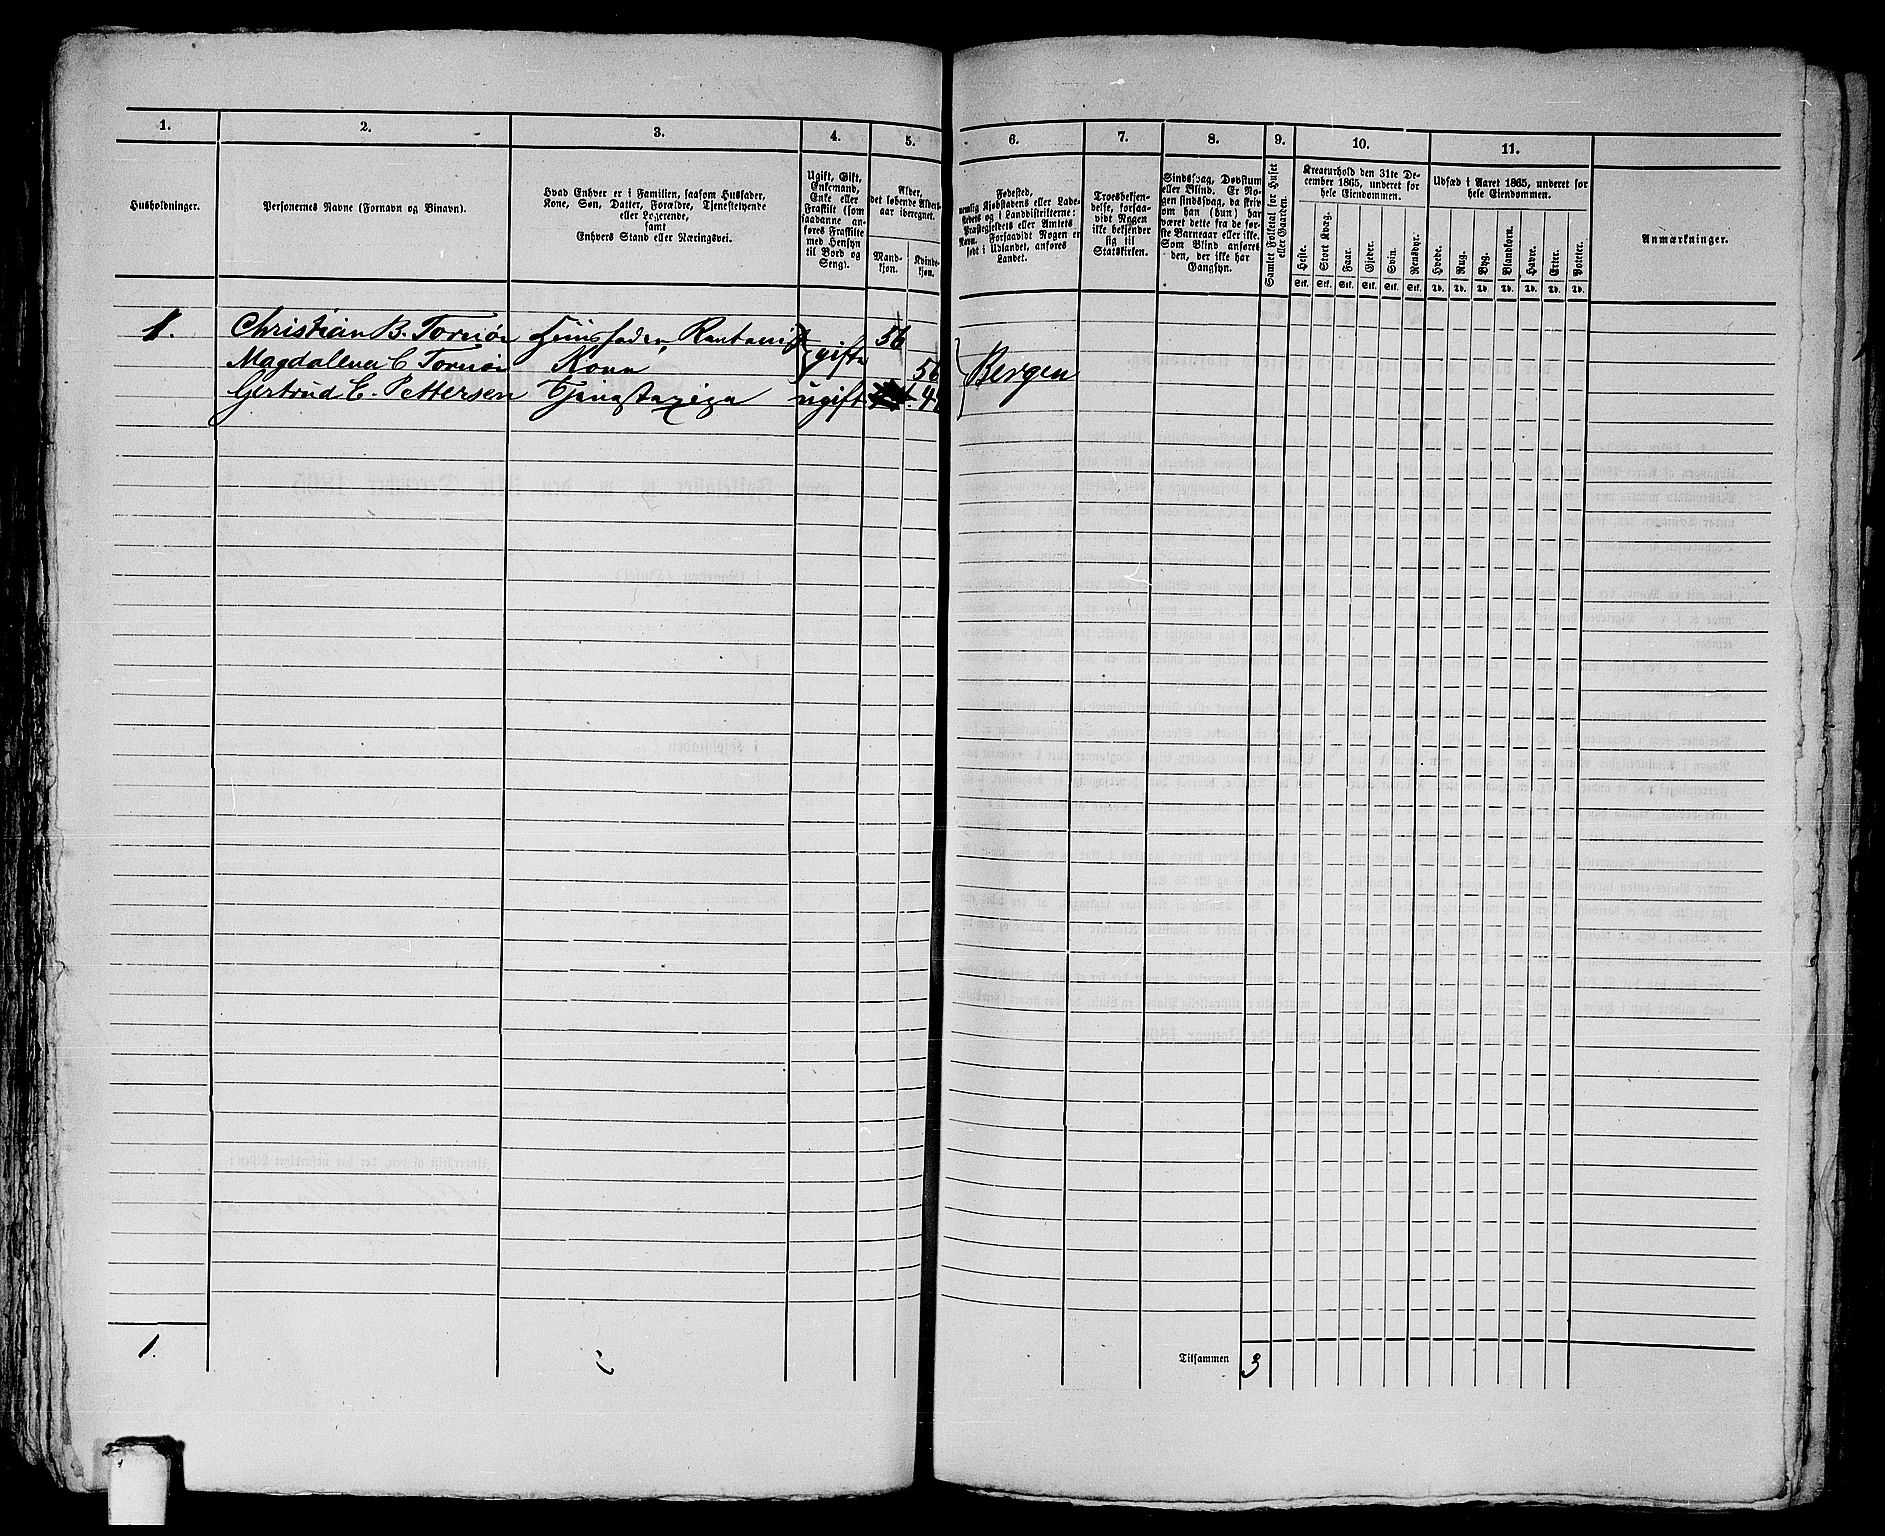 1. 2. 3. 4. 5. 6. 7. 8. 9. 10. 11.
Husholdninger.
Personernes Navne (Fornavn og Binavn).
Hvad Enhver er i Familien, saasom Husfader,
Kone, Søn, Datter, Forældre, Tjenestetyende
eller Logerende,
samt
Enhvers Stand eller Næringsvei.
Ugift, Gift,
Enkemand,
Enke eller
Fraskilt (som
saadanne an-
føres Fraskilte
med Hensyn
til Bord og
Seng).
Alder,
det løbende Alders-
aar iberegnet.
Mand-
kjøn.
Kvinde-
kjøn.
Fødested,
nemlig Kjøbstadens eller Lade-
stedets og i Landdistrikterne:
Præstegjeldets eller Amtets
Navn. Forsaavidt Nogen er
født i Udlandet, anføres
Landet.
Troesbekjen-
delse, forsaa-
vidt Nogen
ikke bekjender
sig til
Statskirken.
Sindssvag, Døvstum
eller Blind. Er No-
gen sindssvag, da skriv
om han (hun) har
været dette fra de før-
ste Barneaar eller ikke.
Som Blind anføres
den, der ikke har
Gangsyn.
Samlet Folketal for Huset
eller Gaarden.
Kreaturhold den 31te De-
cember 1865, underet for
hele Eiendommen.
Heste. Stort Kvæg. Faar. Gjeder. Svin. Rensdyr.
Stk. Stk. Stk. Stk. Stk. Stk.
Udsæd i Aaret 1865, underet for
hele Eiendommen.
Hvede. Rug. Byg. Blandkorn. Havre. Erter. Poteter.
Td. Td. Td. Td. Td. Td. Td.
Anmærkninger.
1. Christian B. Tornøe Huusfader, gifte 56
Magdalena C Tornøe Kone 56
Gertrud E. Pettersen Tjenestepige ugift
Bergen
1.
Tilsammen 3